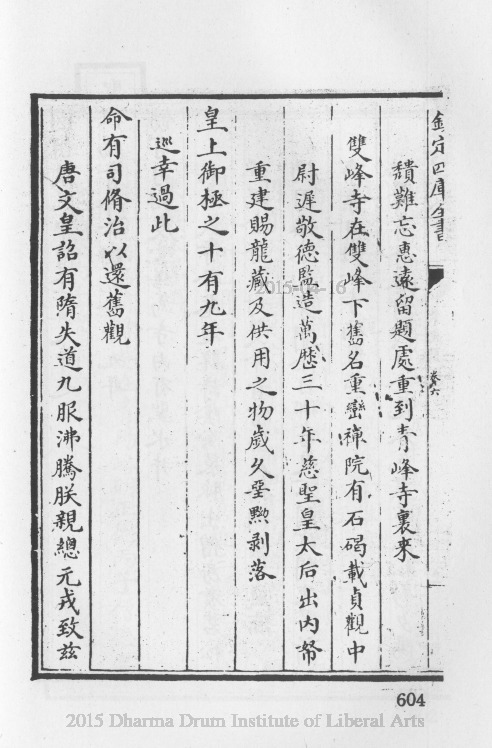 欽定四庫全書
卷六
積難忘惠遠留題處重到青峰寺裏來
雙峰寺在雙峰下舊名重巒禪院有石碣載貞觀中
尉遲敬德監造萬歷三十年慈聖皇太后出內帑
重建賜龍藏及供用之物歲久堊黝剥落
皇上御極之十有九年
巡幸過此
命有司脩治以還舊觀
唐文皇詔有隋失道九服沸騰朕親總元戎致兹
604
2015 Dharma Drum Institute of Liberal Arts